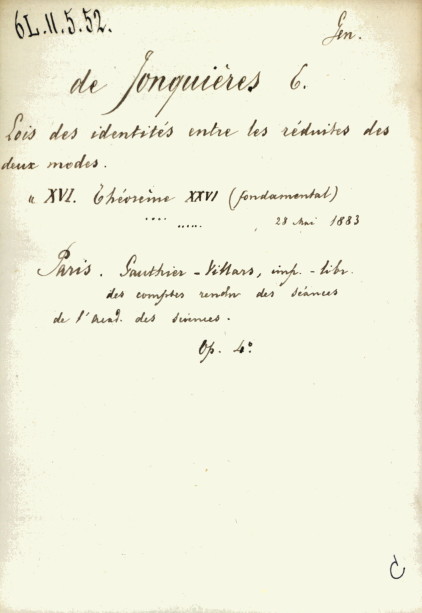 6L.II.5.52.
Gen.
de Jonquières E.
Lois des identités entre les réduites des
deux modes.
" XVI. Théorème XXVI (fondamental)
28 Mai 1883
Paris. Gauthier-Villars, imp.-libr.
des comptes rendu des séances
de l'Acad. des siences.
Op. 4°
C